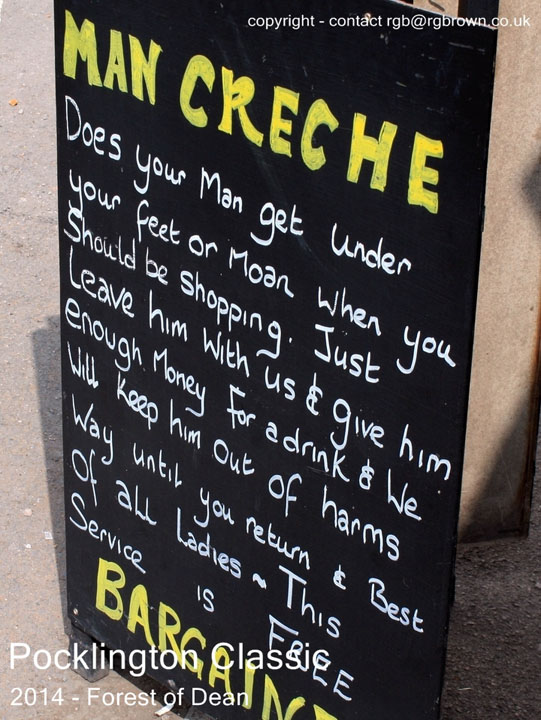 copyright - contact rgb@rgbrown.co.uk
MAN CRECHE
Does your Man get under
your feet or Moan when you
Should be shopping. Just
Leave him with us & give him
enough Money for a drink & We
Will keep him out of harms
Way until you return & Best
Of all Ladies ~ This
Service is FREE
BARGAIN
Pocklington Classic
2014 - Forest of Dean